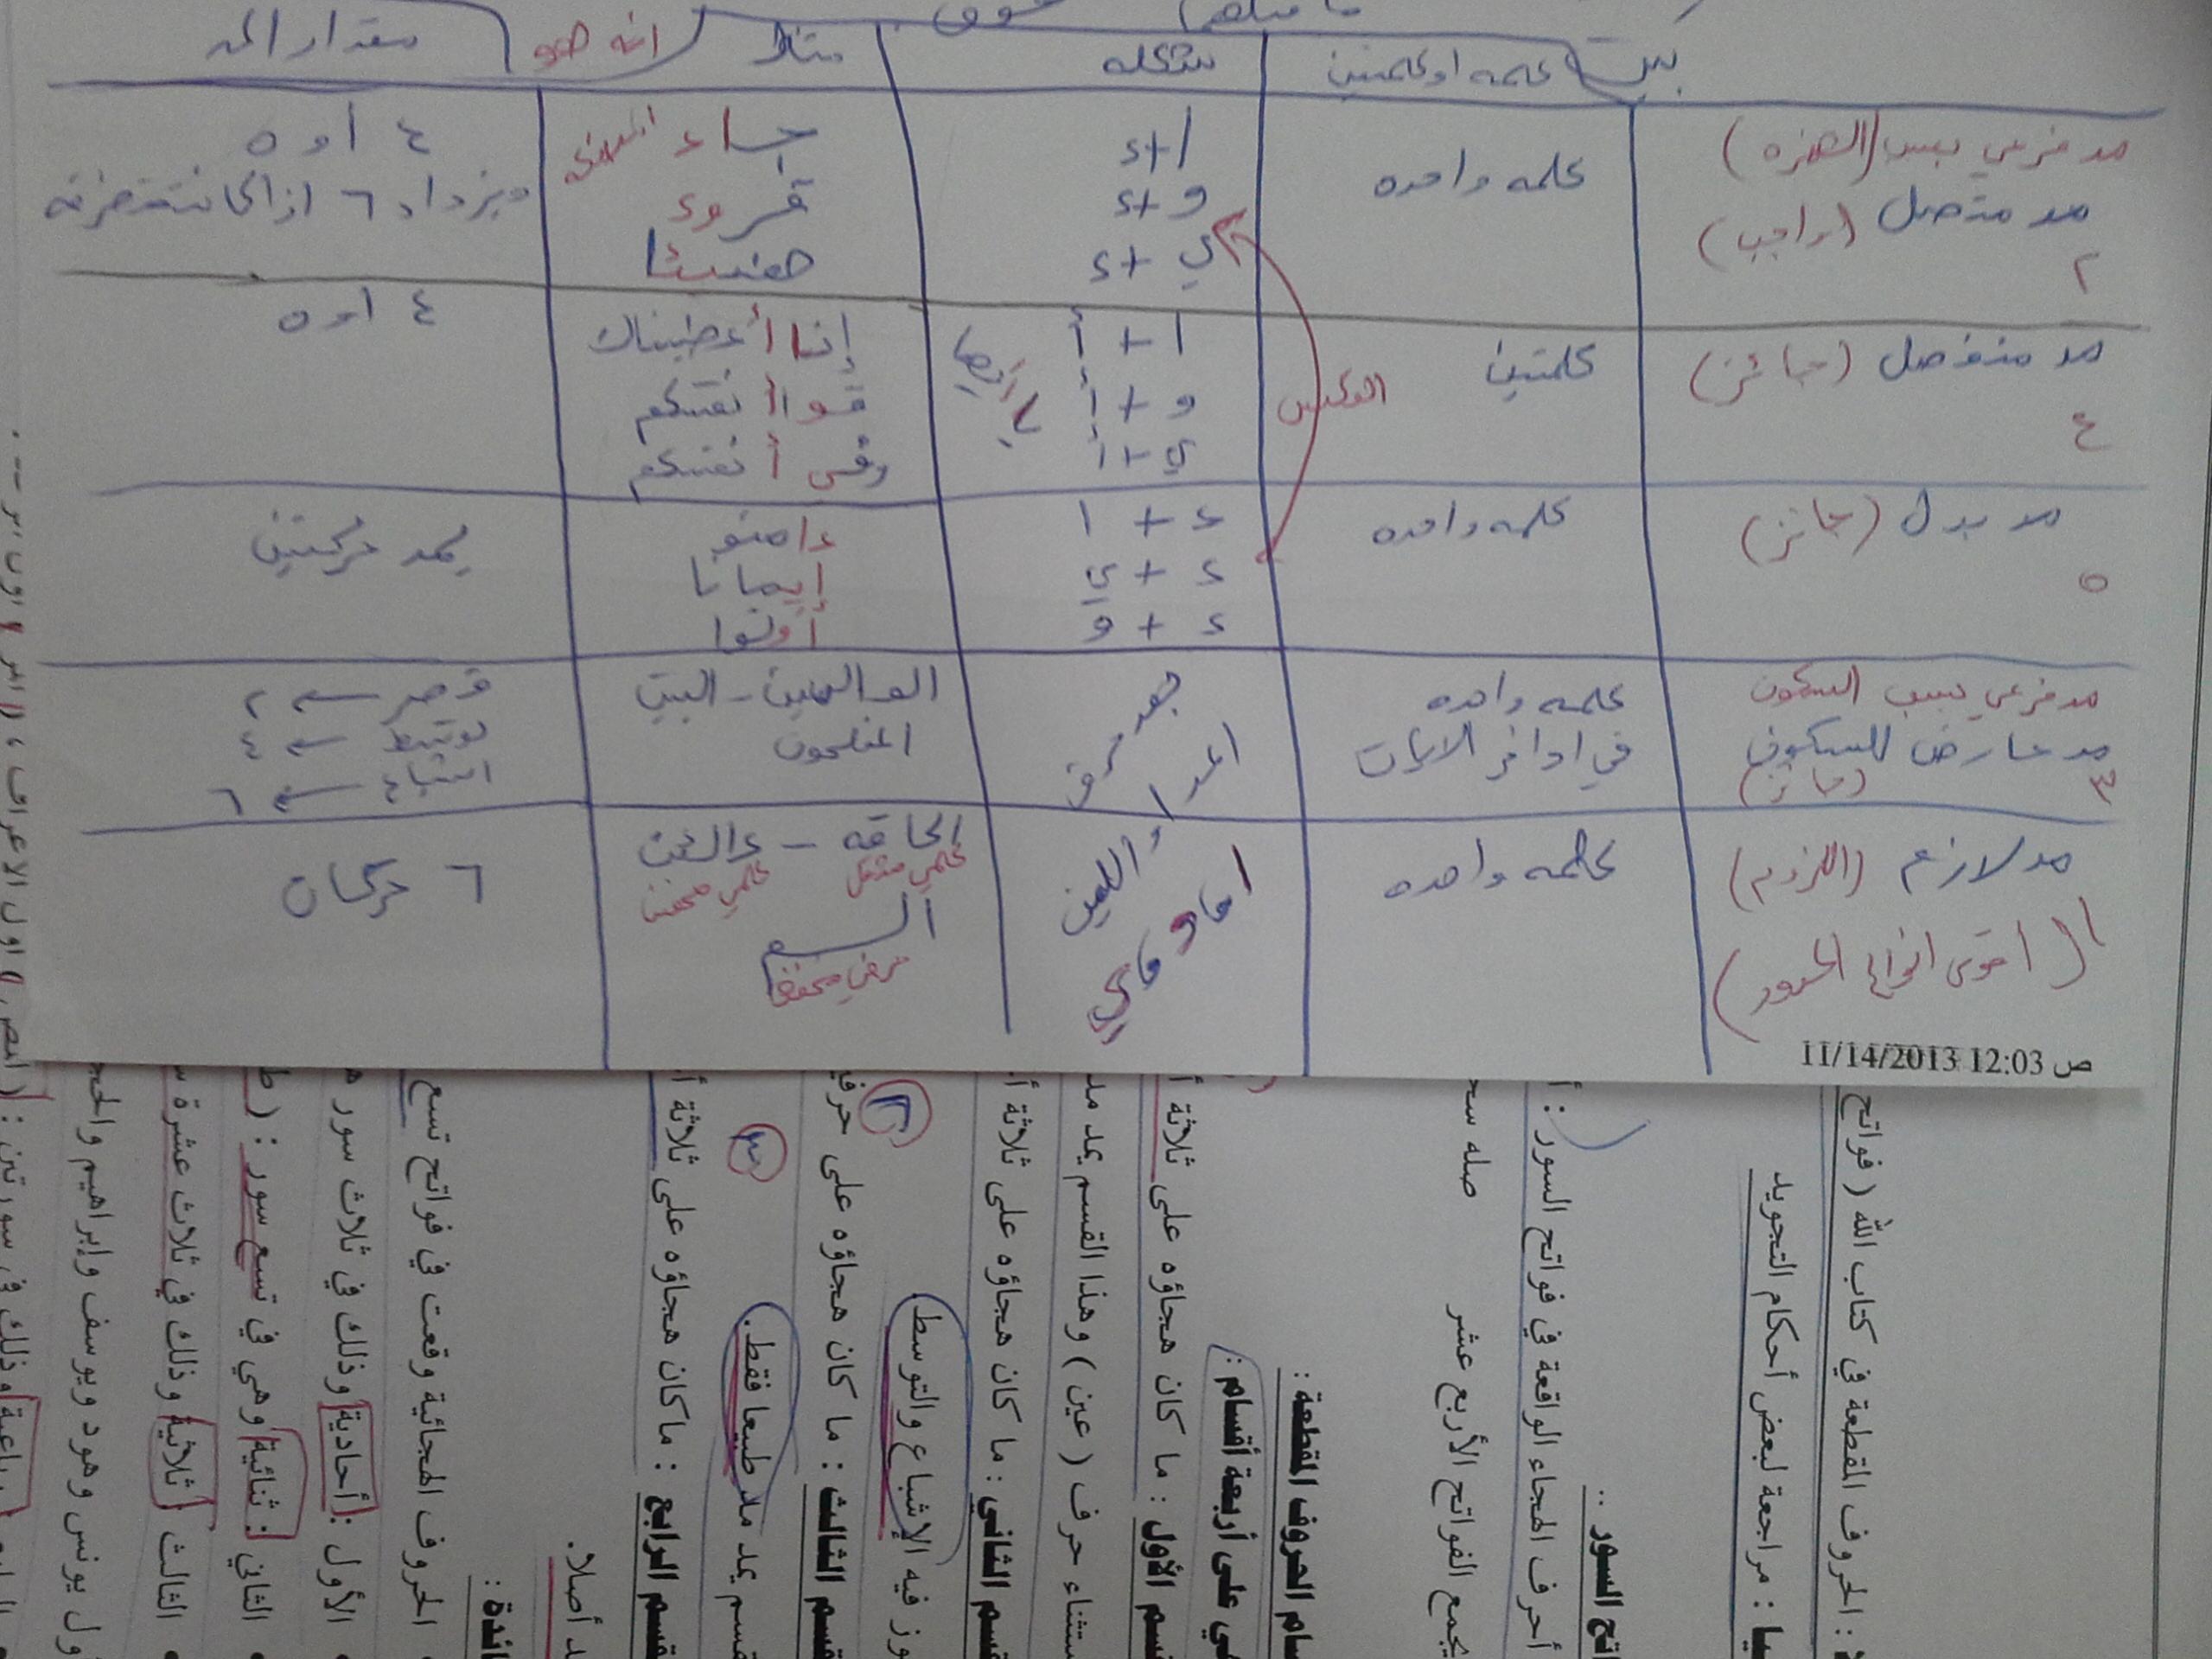 بين كلمه اوكلمتين شكله مثلا انه هو مقدار المد
مد فرعي بسبب (الهمزه)
مد متصل (واجب)
٢
كلمه واحده
ا+ء
و+ء
ي+ء
جاء
قروء
هنيئا
٤ أو ٥
ويزداد ٦ اذا كانت متطرفه
مد منفصل (جائز)
٤
كلمتين
العكس
ا + أ
و + أ
ي + أ
يا أيها
إنا أعطيناك
قوا أنفسكم
وفي أنفسكم
٤ او ٥
مد بدل (جائز)
٥
كلمه واحده
ء + ا
ء + ي
ء + و
ءامنو
إيمانا
أوتوا
يمد حركتين
مد فرعي بسبب السكون
مد عارض للسكون
(جائز)
٣
كلمه واحده
في اواخر الايات
بعد حرف المد
العالمين - البيت
المفلحون
قصر ← ٢
توسط ← ٤
اشباع ← ٦
مد لازم (اللزوم)
١ (اقوى انواع المدود)
كلمه واحده
الحاقه - ءالئن
كلمي مثقل كلمي مخفف
حرفي مخفف
٦ حركات
11/14/2013 12:03 ص
: الحروف المقطعة في كتاب الله ( فواتح
: مراجعة لبعض أحكام التجويد
تح السور ..
أحرف الهجاء الواقعة في فواتح السور :
يجمع الفواتح الأربع عشر صله سح
سام الحروف المقطعة :
ي على أربعة أقسام :
قسم الأول : ما كان هجاؤه على ثلاثة أ
ستثناء حرف ( عين ) وهذا القسم يمد مد
قسم الثاني : ما كان هجاؤه على ثلاثة أ
وز فيه الإشباع والتوسط.
قسم الثالث : ما كان هجاؤه على حرفي
٣
قسم يمد مدا طبيعا فقط.
٤
قسم الرابع : ماكان هجاؤه على ثلاثة أ
د أصلا.
ئدة :
الحروف الهجائية وقعت في فواتح تسع
الأول : أحادية وذلك في ثلاث سور
الثاني : ثنائية وهي في تسع سور : ( ط
الثالث : ثلاثية وذلك في ثلاث عشرة س
ول يونس وهود ويوسف وإبراهيم والحج